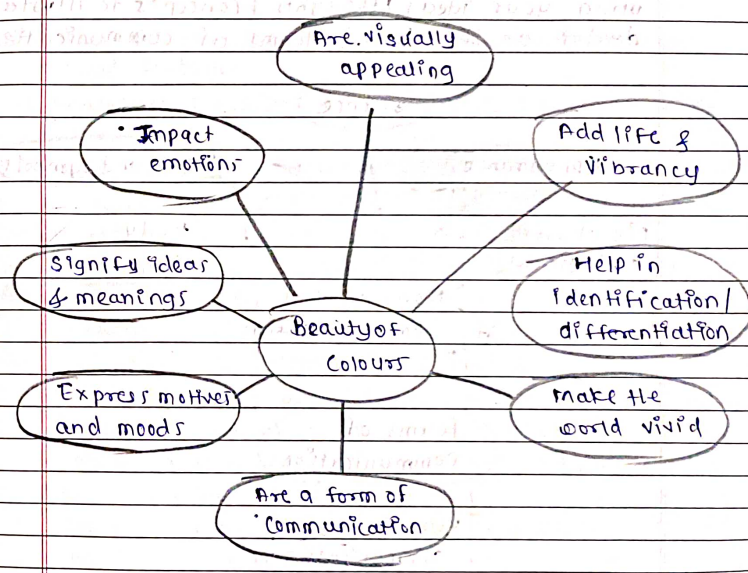 Are visually
appealing
Impact
emotions
Add life &
Vibrancy
Signify ideas
& meanings
Help in
identification/
differentiation
Beauty of
Colours
Express motives
and moods
Make the
world vivid
Are a form of
Communication